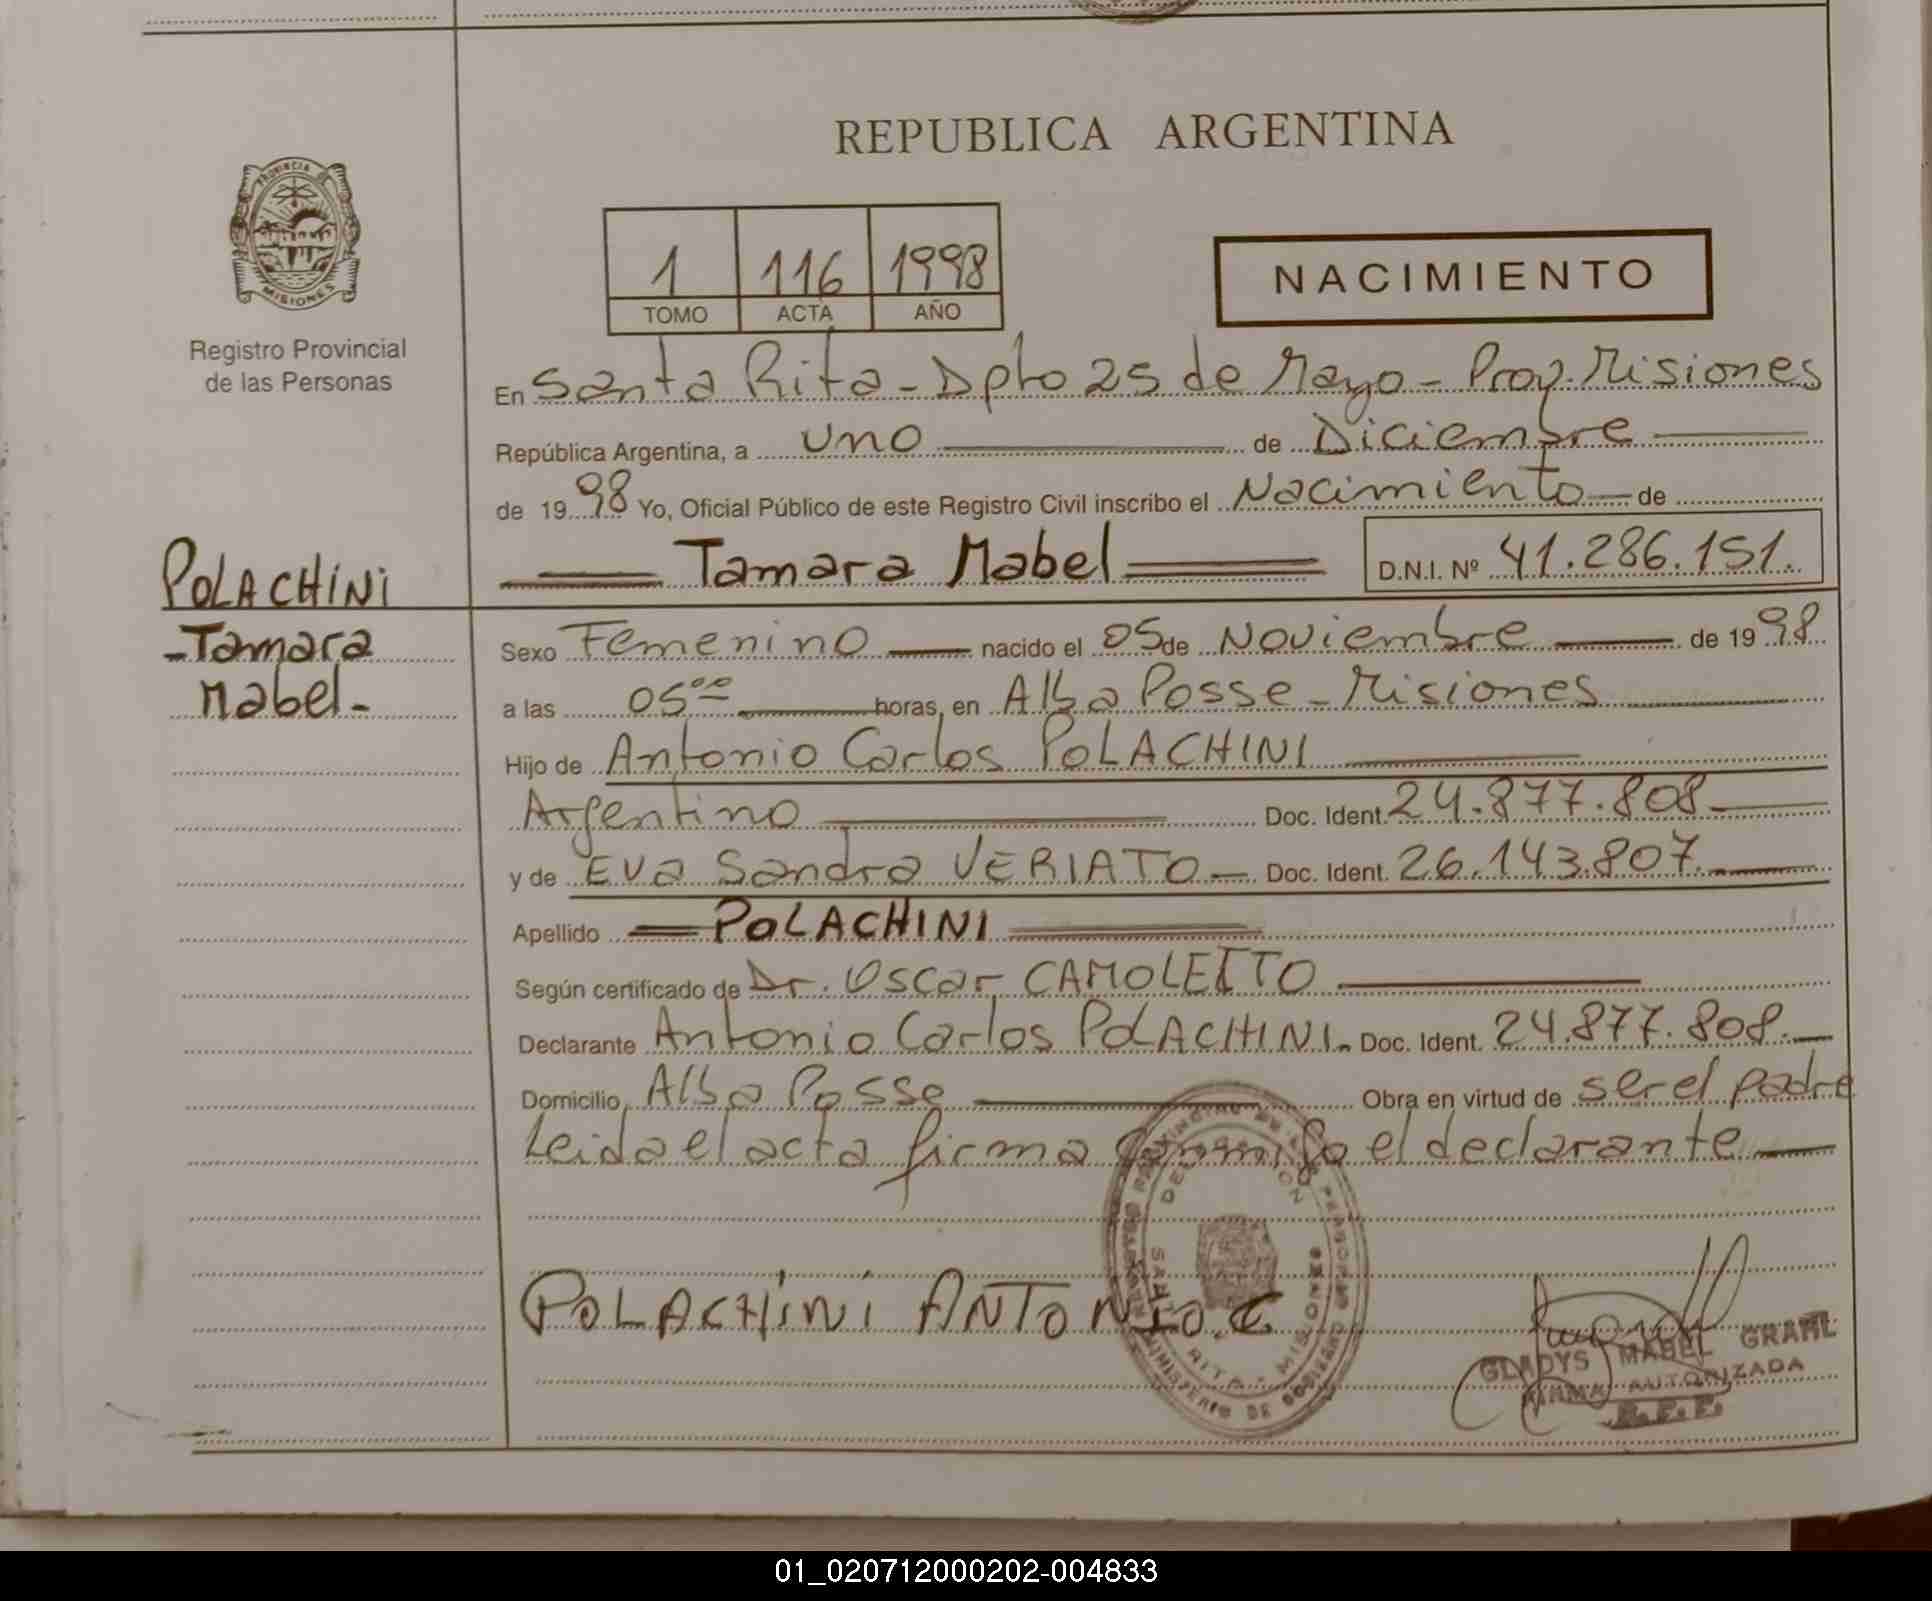 REPUBLICA ARGENTINA
PROVINCIA DE
MISIONES
Registro Provincial
de las Personas
1 116 1998
TOMO ACTA AÑO
NACIMIENTO
En Santa Rita - Dpto 25 de Mayo - Prov. Misiones
República Argentina, a uno de Diciembre
de 1998 Yo, Oficial Público de este Registro Civil inscribo el Nacimiento de
Tamara Mabel D.N.I. Nº 41.286.151.
POLACHINI
-Tamara
Mabel-
Sexo Femenino nacido el 05 de Noviembre de 1998
a las 05 00 horas, en Alba Posse - Misiones
Hijo de Antonio Carlos POLACHINI
Argentino Doc. Ident. 24.877.808
y de Eva Sandra VERIATO Doc. Ident. 26.143.807.
Apellido POLACHINI
Según certificado de Dr. Oscar CAMOLETTO
Declarante Antonio Carlos POLACHINI. Doc. Ident. 24.877.808.
Domicilio Alba Posse Obra en virtud de ser el padre
Leida el acta firma conmigo el declarante
POLACHINI ANTONIO. C
SANTA RITA - MISIONES
MINISTERIO DE GOBIERNO
GLADYS MABEL GRAHL
FIRMA AUTORIZADA
01_020712000202-004833